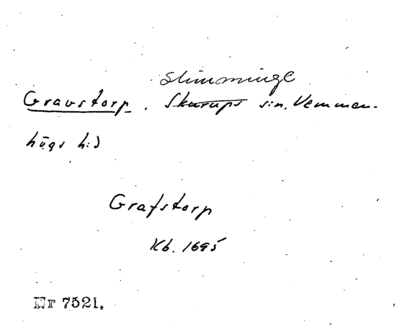 Slimminge
Gravstorp. Skurups s:n, Vemmen-
högs h:d
Grafstorp
Kb. 1695
Nr 7521.